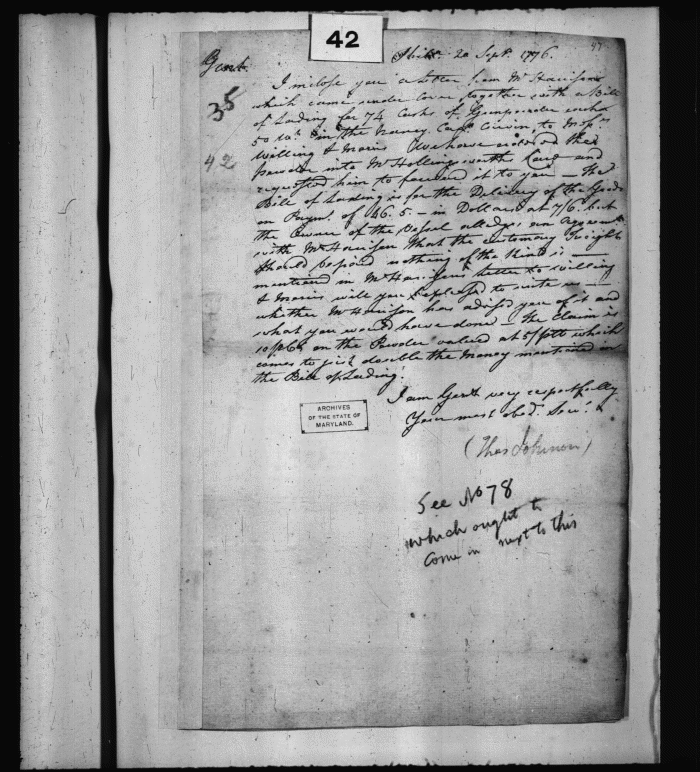 42
47
Phila. 20 Sept. 1776.
Gent.
35
42
I inclose you a Letter from Mr. Harrison
which came under Cover together with a Bill
of Lading for 74 Casks of Gunpowder each
50 wt. in the Nancy Capt. to Messrs
Willing & Morris We have ordered the
powder into Mr Hollingsworths Care and
requested him to forward it to you — the
Bill of Lading is for the Delivery of the Goods
on Paymt. of 46.5. — in Dollars at 7/6. but
the Owner of the Vessel alledges an Agreement
with Mr Harrison that the customary Freight
should be paid nothing of the kind is
mentioned in Mr Harrison's Letter to Willing
& Morris will you be pleased to write us —
whether Mr Harrison has advised you of it and
what you would have done — the Claim is
on the Powder valued at 5/ which
comes to just double the Money mentioned in
the Bill of Lading.
I am Gent. very respectfully
Your most obed. Serv. &
ARCHIVES
OF THE STATE OF
MARYLAND.
(Thos Johnson)
See No 78
which ought to
come in next to this